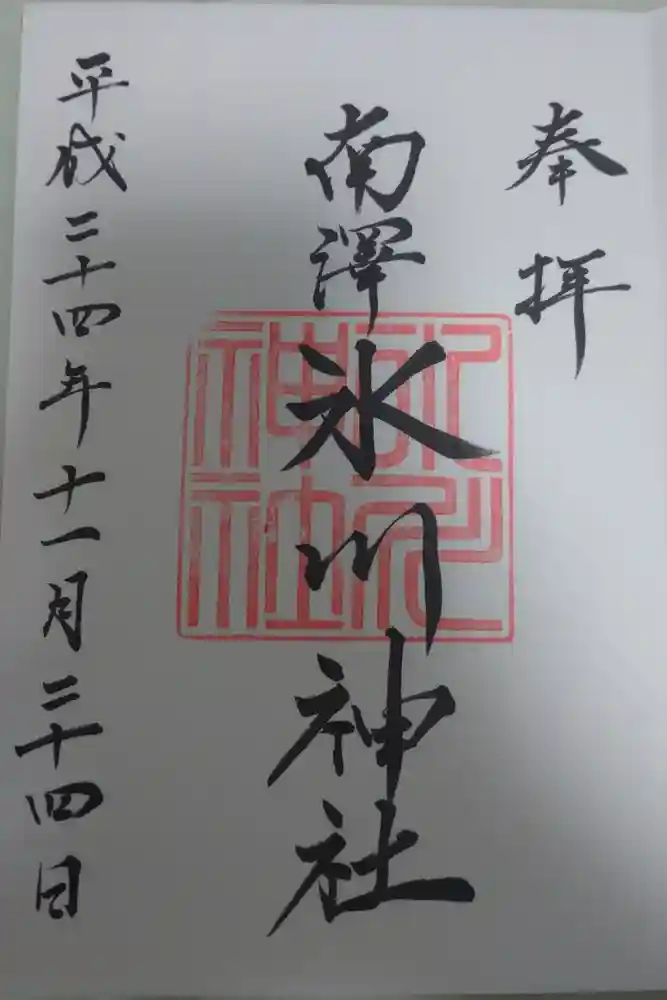 奉拝
南澤氷川神社
氷川
神社
平成二十四年十一月二十四日